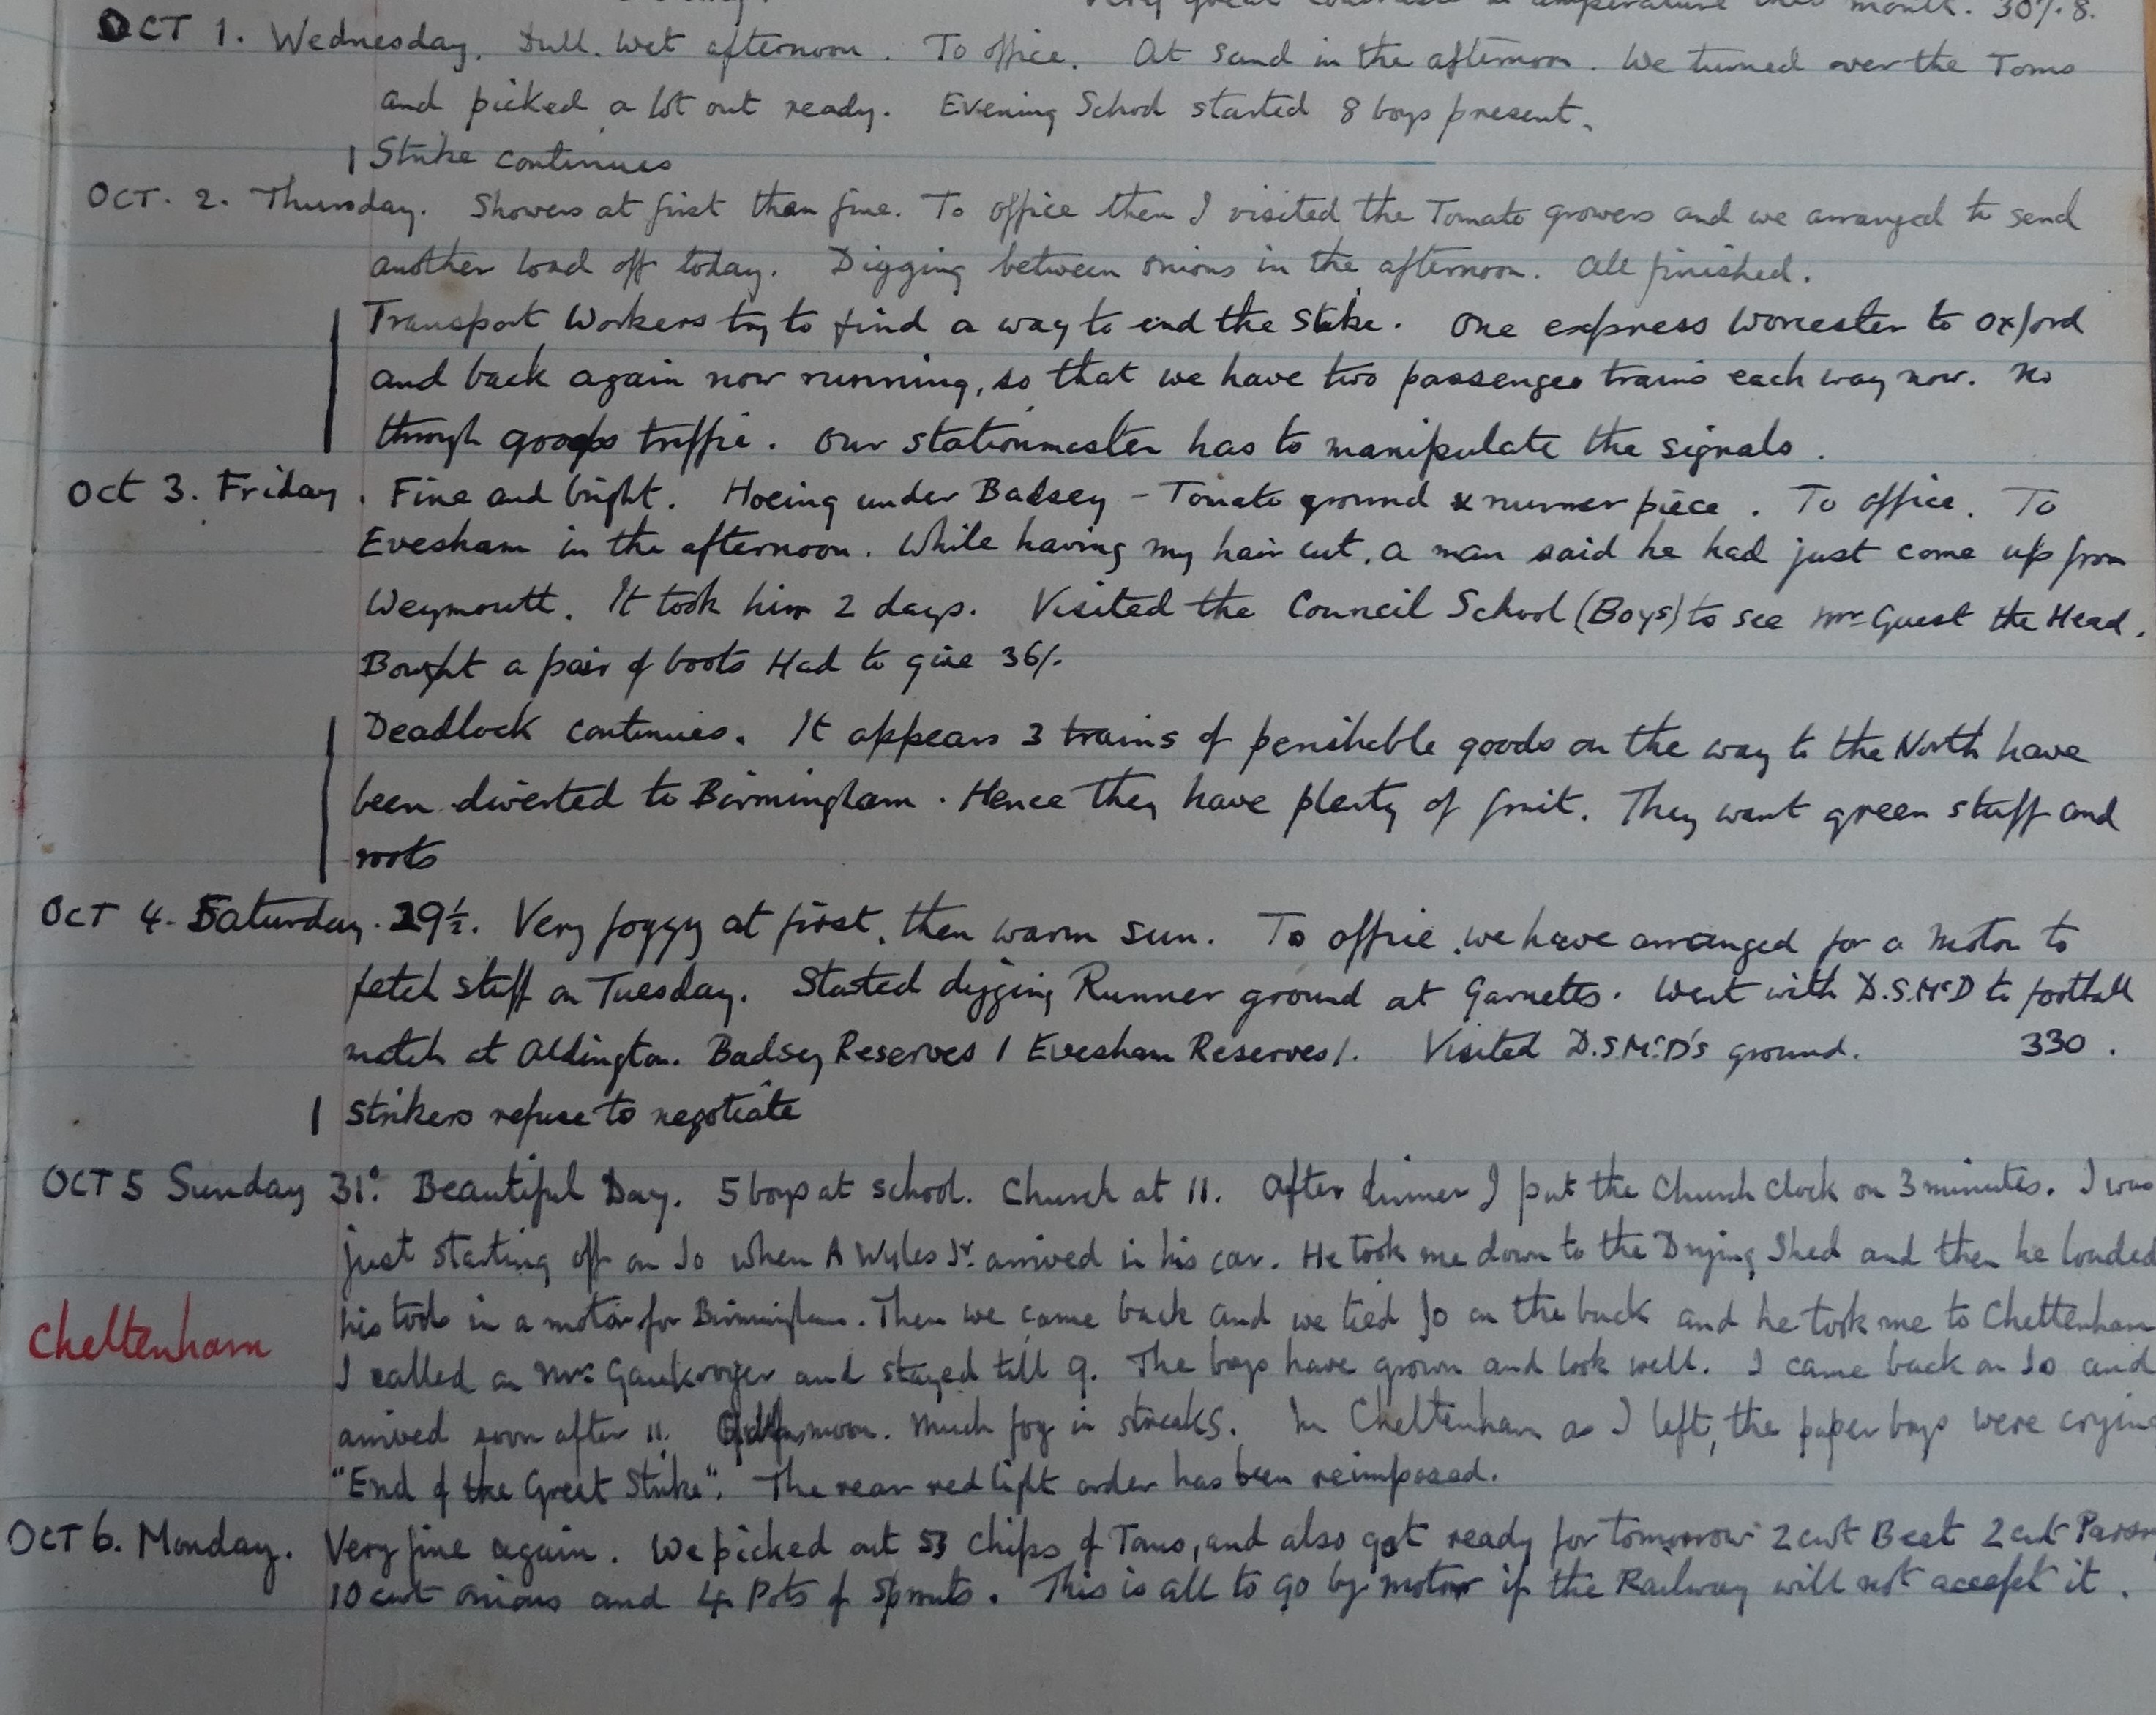 very great contrasts in temperature this month. 30%.8.
OCT 1. Wednesday. Dull. Wet afternoon. To office. At Sand in the afternoon. We turned over the Toms
and picked a lot out ready. Evening School started 8 boys present.
Strike continues
OCT. 2. Thursday. Showers at first then fine. To office then I visited the Tomato growers and we arranged to send
another load off today. Digging between onions in the afternoon. All finished.
Transport Workers try to find a way to end the Stike. One express Worcester to Oxford
and back again now running, so that we have two passenger trains each way now. No
through goods traffic. Our stationmaster has to manipulate the signals.
Oct 3. Friday. Fine and bright. Hoeing under Badsey - Tomato ground & runner piece. To office. To
Evesham in the afternoon. While having my hair cut, a man said he had just come up from
Weymouth. It took him 2 days. Visited the Council School (Boys) to see Mr Guest the Head.
Bought a pair of boots Had to give 36/.
Deadlock continues. It appears 3 trains of perishable goods on the way to the North have
been diverted to Birmingham. Hence they have plenty of fruit. They want green stuff and
roots
OCT 4. Saturday. 29½. Very foggy at first, then warm sun. To office. we have arranged for a motor to
fetch stuff on Tuesday. Started digging Runner ground at Garnetts. Went with D.S.McD to football
match at Aldington. Badsey Reserves 1 Evesham Reserves 1. Visited D.S.McD's ground. 330.
Strikers refuse to negotiate
OCT 5 Sunday 31°. Beautiful Day. 5 boys at school. Church at 11. After dinner I put the Church Clock on 3 minutes. I was
just starting off on Jo when A Wyles Jr. arrived in his car. He took me down to the Drying Shed and then he loaded
his tools in a motor for Birmingham. Then we came back and we tied Jo on the back and he took me to Cheltenham
Cheltenham
I called on Mrs Gaukroger and stayed till 9. The boys have grown and look well. I came back on Jo and
arrived soon after 11. moon. Much fog in streaks. In Cheltenham as I left, the paper boys were crying
"End of the Great Strike". The rear red light order has been reimposed.
OCT 6. Monday. Very fine again. We picked out 53 Chips of Toms, and also got ready for tomorrow 2 cwt Beet 2 cwt Parsn
10 cwt onions and 4 Pots of Sprouts. This is all to go by motor if the Railway will not accept it.